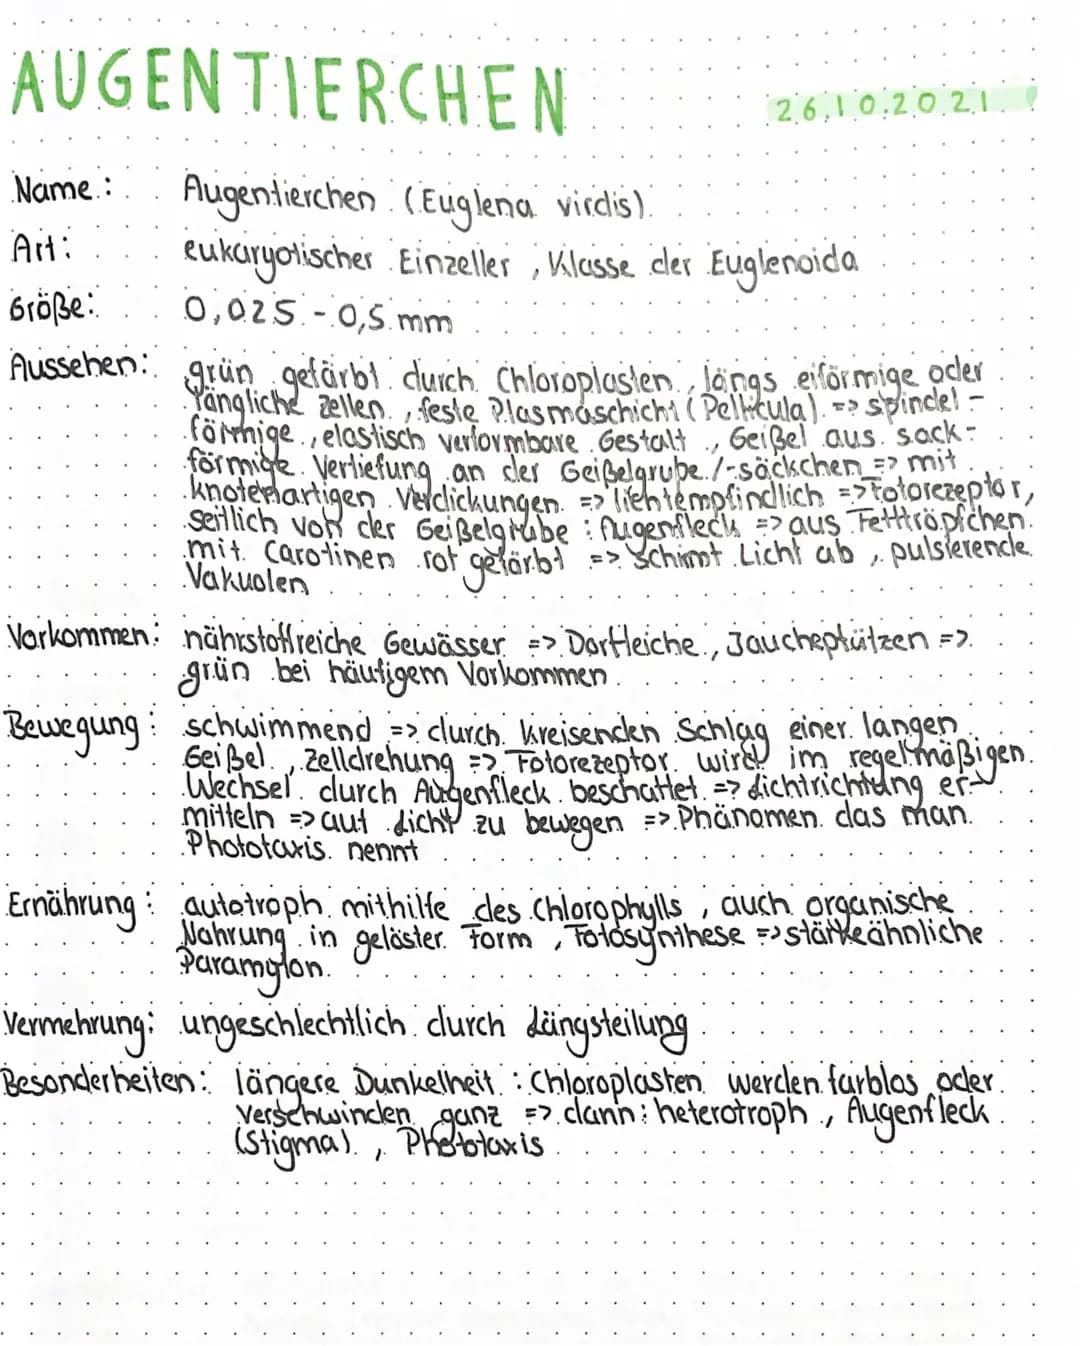 AUGENTIERCHEN
26.10.2021
Name: Augentierchen (Euglena virdis)
Art: eukaryotischer Einzeller, Klasse der Euglenoida
Größe: 0,025 - 0,5 mm
Aussehen: grün gefärbt durch Chloroplasten, längs eiförmige oder
längliche Zellen, feste Plasmaschicht (Pellicula) => spindel-
förmige, elastisch verformbare Gestalt, Geißel aus sack-
förmige Vertiefung an der Geißelgrube /-säckchen => mit
knotenartigen Verdickungen => lichtempfindlich => Fotorezeptor,
seitlich von der Geißelgrube: Augenfleck => aus Fetttröpfchen
mit Carotinen rot gefärbt => schirmt Licht ab, pulsierende
Vakuolen
Vorkommen: nährstoffreiche Gewässer => Dorfteiche, Jauchepfützen =>
grün bei häufigem Vorkommen
Bewegung: schwimmend => durch kreisenden Schlag einer langen
Geißel, Zelldrehung => Fotorezeptor wird im regelmäßigen
Wechsel durch Augenfleck beschattet => Lichtrichtung er-
mitteln => auf Licht zu bewegen => Phänomen das man
Phototaxis nennt
Ernährung: autotroph mithilfe des Chlorophylls, auch organische
Nahrung in gelöster Form, Fotosynthese => stärkeähnliche
Paramylon
Vermehrung: ungeschlechtlich durch Längsteilung
Besonderheiten: längere Dunkelheit: Chloroplasten werden farblos oder
verschwinden ganz => dann: heterotroph, Augenfleck
(Stigma), Phototaxis